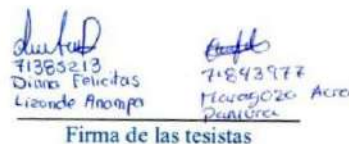 71385213
Diana Felicitas
Lizonde Anampa
71843977
Maragoza Acro
Firma de las tesistas